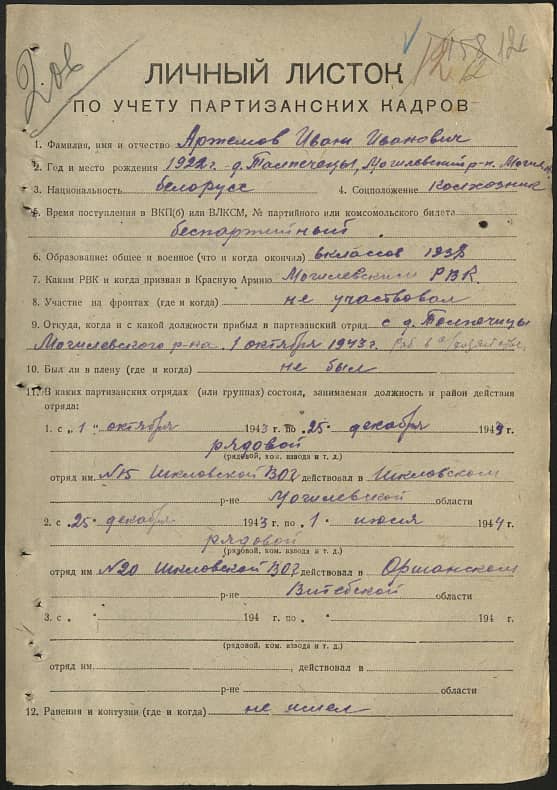 ЛИЧНЫЙ ЛИСТОК
ПО УЧЕТУ ПАРТИЗАНСКИХ КАДРОВ
1. Фамилия, имя и отчество Артемов Иван Иванович
2. Год и место рождения 1922г. д. Толпечецы, Могилевский р-н. Могил.
3. Национальность белорусс 4. Соцположение Колхозник
5. Время поступления в ВКП(б) или ВЛКСМ, № партийного или комсомольского билета
беспартийный
6. Образование: общее и военное (что и когда окончил) 6 классов 1938
7. Каким РВК и когда призван в Красную Армию Могилевским РВК
8. Участие на фронтах (где и когда) не участвовал
9. Откуда, когда и с какой должности прибыл в партизанский отряд с д. Толпечицы
Могилевского р-на 1 октября 1943г. Раб. в с/хозяйстве
10. Был ли в плену (где и когда) не был
11. В каких партизанских отрядах (или группах) состоял, занимаемая должность и район действия
отряда:
1. с „1" октября 1943 г. по „25" декабря 1943 г.
рядовой
(рядовой, ком. взвода и т. д.)
отряд им. №15 Шкловской ВОГ действовал в Шкловском
р-не Могилевской области
2. с „25" декабря 1943 г. по „1" июля 1944 г.
рядовой
(рядовой, ком. взвода и т. д.)
отряд им. №20 Шкловской ВОГ действовал в Оршанском
р-не Витебской области
3. с „ " 194 г. по „ " 194 г.
(рядовой, ком. взвода и т. д.)
отряд им. действовал в
р-не области
12. Ранения и контузии (где и когда) не имел